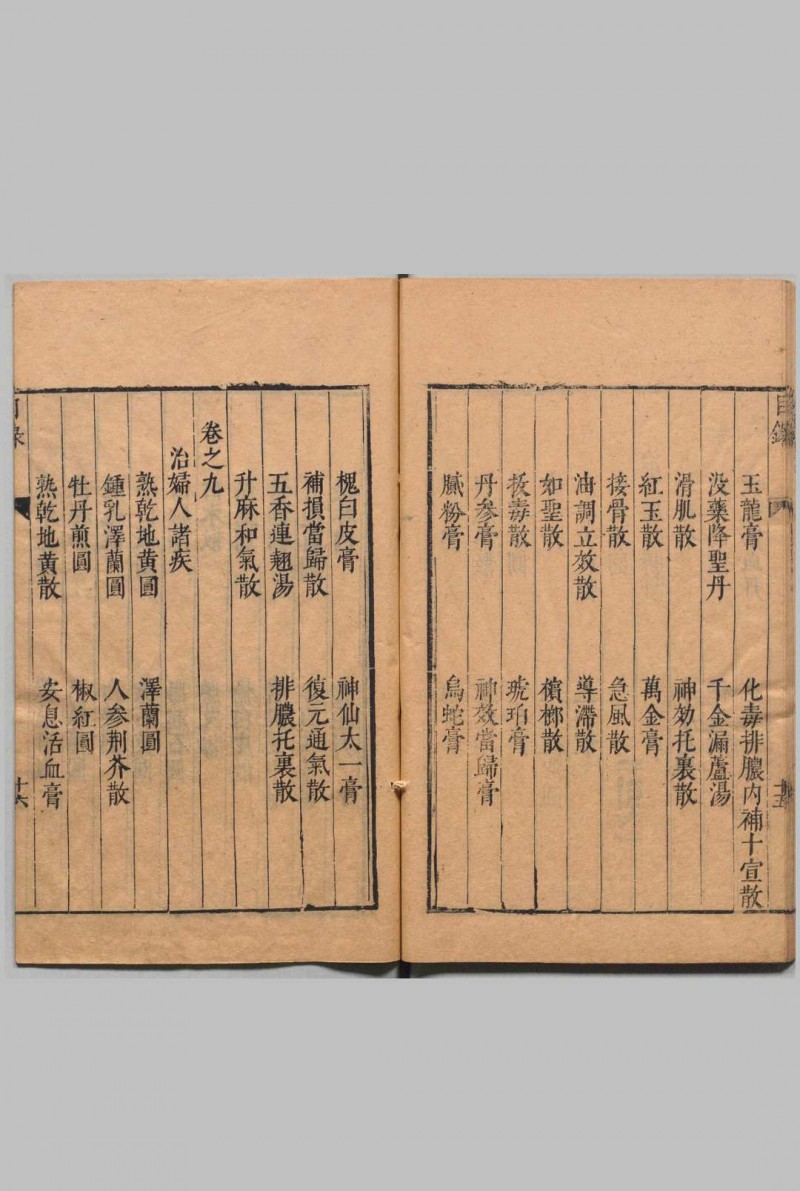 目錄
十五
玉龍膏 化毒排膿內補十宣散
沒藥降聖丹 千金漏蘆湯
滑肌散 神効托裏散
紅玉散 萬金膏
接骨散 急風散
油調立效散 導滯散
如聖散 檳榔散
拔毒散 琥珀膏
丹參膏 神效當歸膏
膩粉膏 烏蛇膏
槐白皮膏 神仙太一膏
補損當歸散 復元通氣散
五香連翹湯 排膿托裏散
升麻和氣散
卷之九
治婦人諸疾
熟乾地黃圓 澤蘭圓
鍾乳澤蘭圓 人參荆芥散
牡丹煎圓 椒紅圓
熟乾地黃散 安息活血膏
目錄
十六